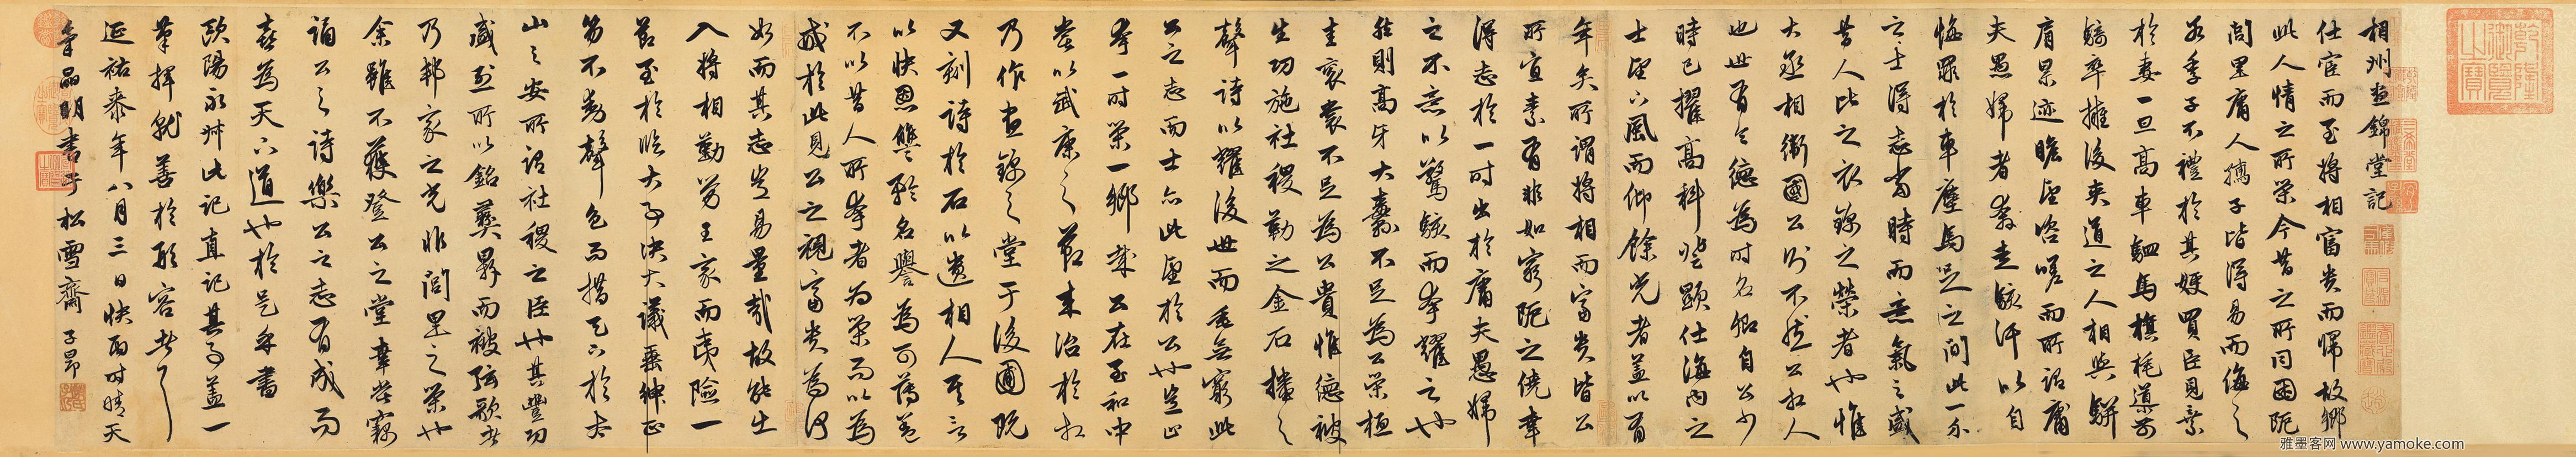 乾隆御覽之寶
相州晝錦堂記
仕宦而至將相富貴而歸故鄉
此人情之所榮今昔之所同困阨
閭里庸人孺子皆得易而侮之
若季子不禮於其嫂買臣見棄
於妻一旦高車駟馬旗旄導前
騎卒擁後夾道之人相與駢
肩累迹瞻望咨嗟而所謂庸
夫愚婦者奔走駭汗以自
悔罪於車塵馬足之間此一介
之士得志當時而意氣之盛
昔人比之衣錦之榮者也惟
大丞相衛國公則不然公相人
也世有令德為時名卿自公少
時已擢高科登顯仕海內之
士望下風而仰餘光者蓋以有
年矣所謂將相而富貴皆公
所宜素有非如窮阨之僥幸
得志於一時出於庸夫愚婦
之不意以驚駭而夸耀之也
然則高牙大纛不足為公榮桓
圭袞裳不足為公貴惟德被
生功施社稷勒之金石播之
聲詩以耀後世而垂無窮此
公之志而士亦此望於公也豈止
夸一時榮一鄉哉公在至和中
嘗以武康之節來治於相
乃作晝錦之堂于後圃既
又刻詩於石以遺相人其言
以快恩讎矜名譽為可薄蓋
不以昔人所夸者為榮而以為
戒於此見公之視富貴為何
如而其志豈易量哉故能出
入將相勤勞王家而夷險一
節至於臨大事決大議垂紳正
笏不動聲色而措天下於太
山之安所謂社稷之臣也其豐功
盛烈所以銘彝鼎而被弦歌者
乃邦家之光非閭里之榮也
余雖不獲登公之堂幸嘗竊
誦公之詩樂公之志有成而
喜為天下道也於是乎書
歐陽永叔此記真記其事蓋一
筆揮就善於形容者
延祐泰年八月三日快雨時晴天
明書于松雪齋 子昂
雅墨客网 www.yamoke.com